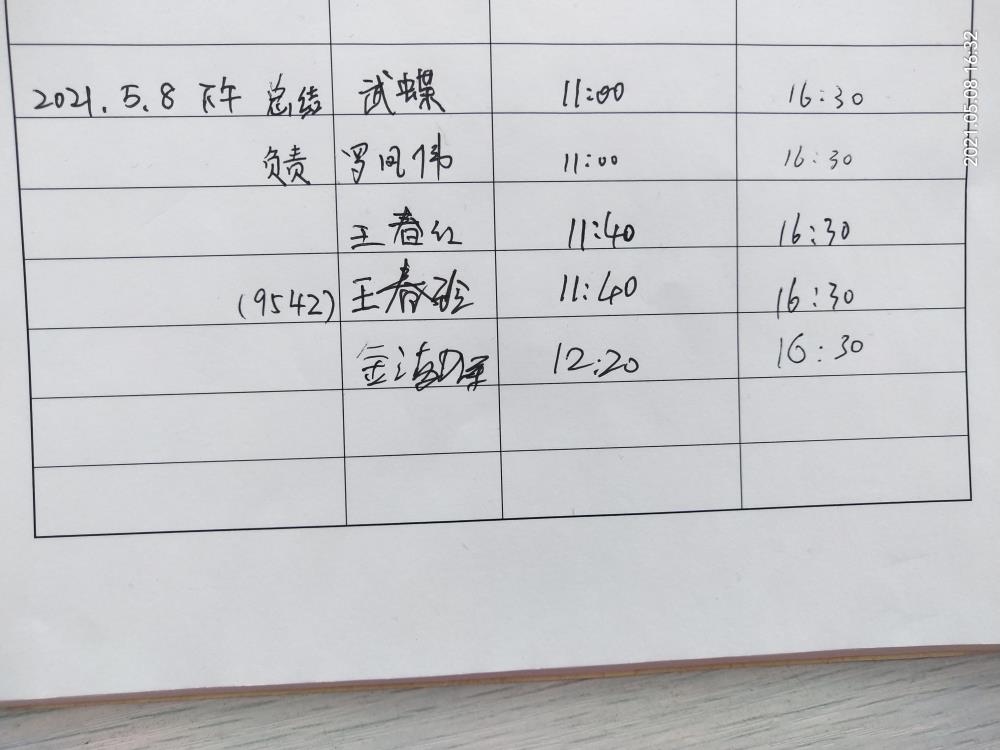 2021.5.8 下午 总结 武蝶 11:00 16:30
负责 罗凤伟 11:00 16:30
王春红 11:40 16:30
(9542) 王春玲 11:40 16:30
金 12:20 16:30
2021.05.08 16:32